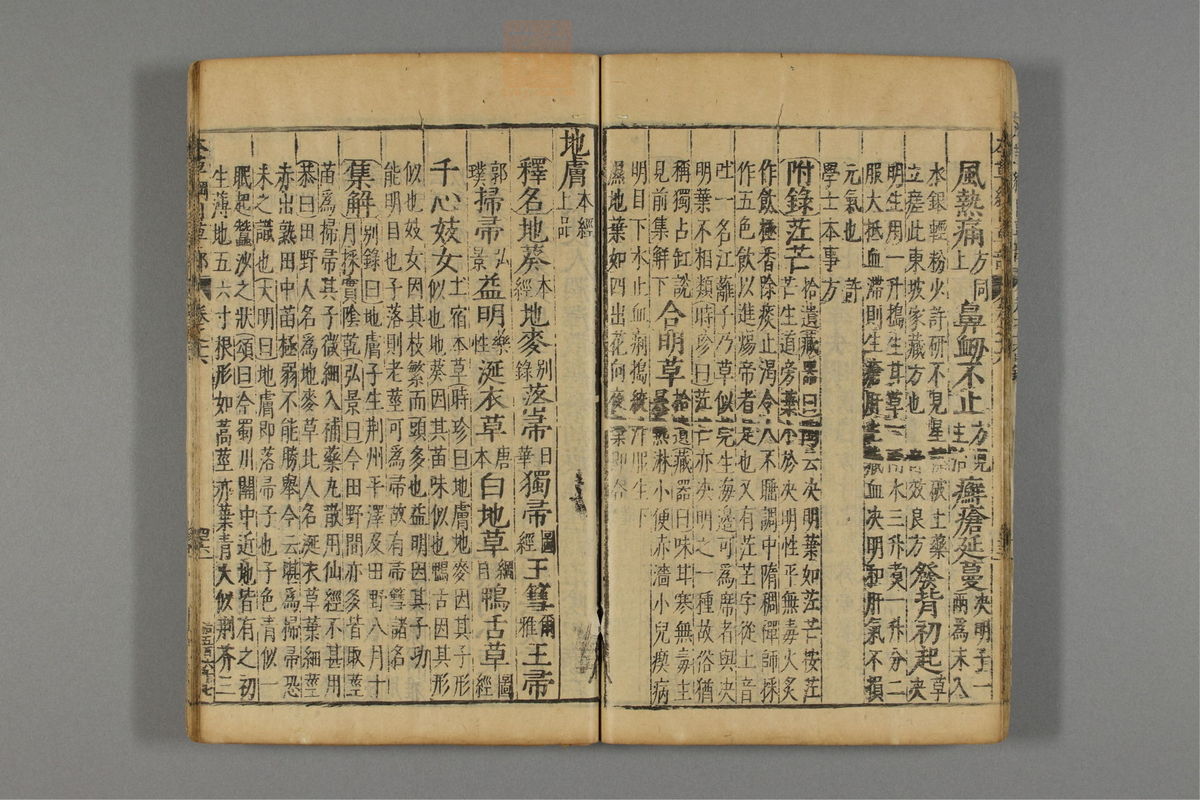 風熱痛方同上鼻衂不止方見生治癬瘡延蔓決明子一兩為末入
水銀輕粉少許研不見星擦破上藥
立瘥此東坡家藏方也奇效良方發背初起草決
明生用一升搗生甘草一兩水三升煑一升分二
服大抵血滯則生瘡肝主藏血決明和肝氣不損
元氣也許
學士本事方
附錄茳芒拾遺藏器曰陶云決明葉如茳芒按茳
芒生道旁葉小於決明性平無毒火炙
作飲極香除痰止渴令人不睡調中隋稠禪師採
作五色飲以進煬帝者是也又有茳芏字從土音
吐一名江蘺子乃草似莞生海邊可為席者與決
明葉不相類時珍曰茳芒亦決明之一種故俗猶
稱獨占缸說
見前集解下合明草拾遺藏器曰味甘寒無毒主
暴熱淋小便赤濇小兒瘈病
明目下水止血痢搗絞汁服生下
濕地葉如四出花向夜葉即合
地膚本經上品
釋名地葵本經地麥別錄落帚日華獨帚圖經王篲爾雅王帚
郭璞掃帚弘景益明藥性涎衣草唐本白地草綱目鴨舌草圖經
千心妓女土宿本草時珍曰地膚地麥因其子形
似也地葵因其苗味似也鴨舌因其形
似也妓女因其枝繁而頭多也益明因其子功
能明目也子落則老莖可為帚故有帚篲諸名
集解別錄曰地膚子生荆州平澤及田野八月十
月採實陰乾弘景曰今田野間亦多皆取莖
苗為掃帚其子微細入補藥丸散用仙經不甚用
恭曰田野人名為地麥草北人名涎衣草葉細莖
赤出熟田中苗極弱不能勝舉今云堪為掃帚恐
未之識也大明曰地膚即落帚子也子色青似一
眠起蠶沙之狀頌曰今蜀川關中近地皆有之初
生薄地五六寸根形如蒿莖赤葉青大似荆芥三
本草綱目草部 卷之十六